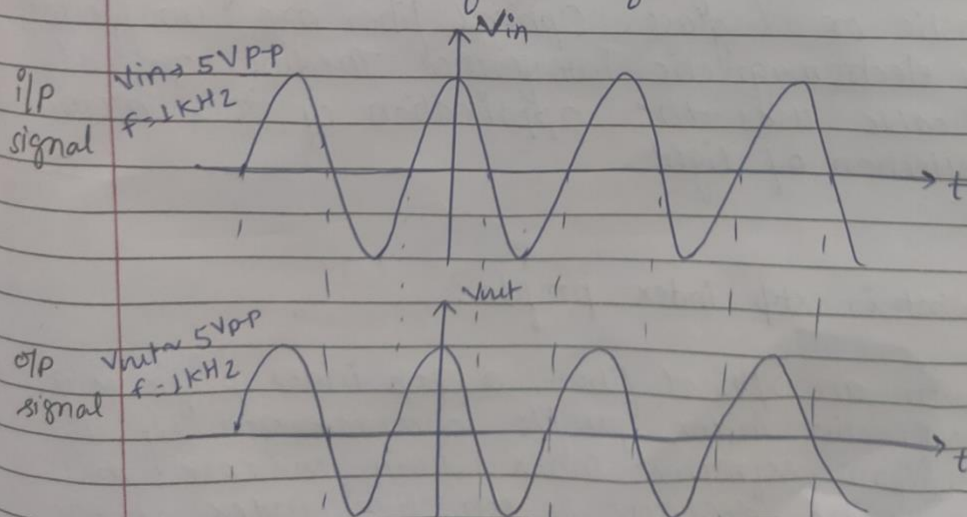 Vin
i/p
signal
Vin → 5VP-P
f = 1KHZ
t
Vout
o/p
signal
Vout ~ 5VP-P
f = 1KHZ
t